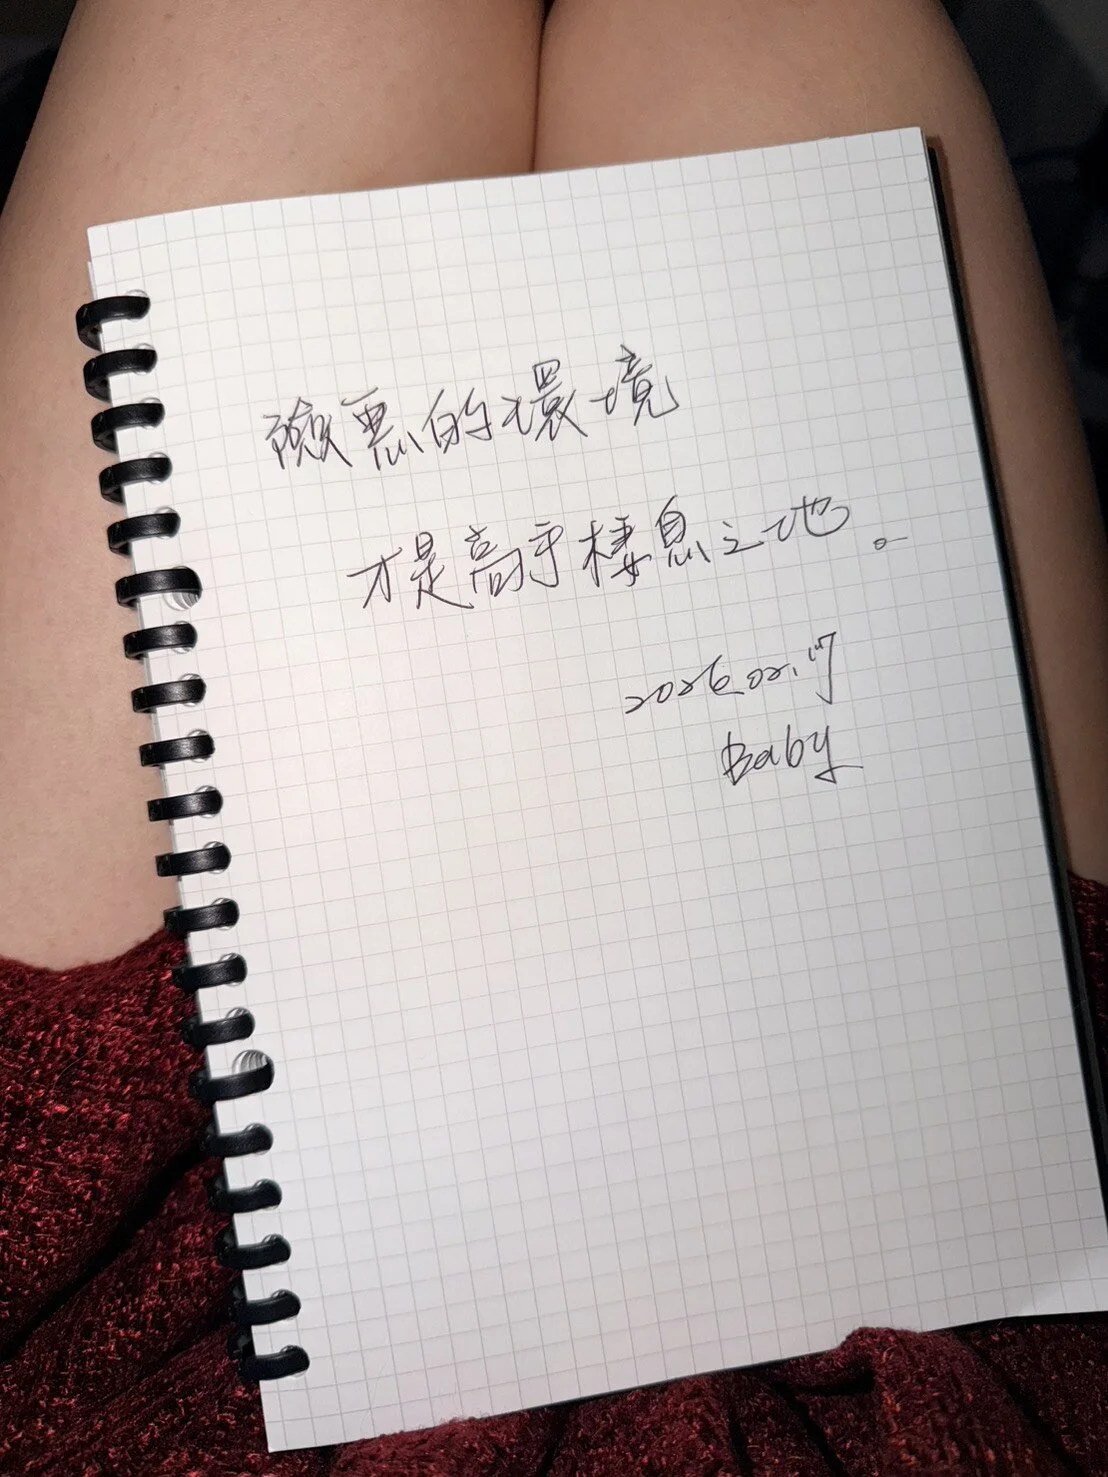 險惡的環境
才是高手棲息之地。
2026.02.17
Baby